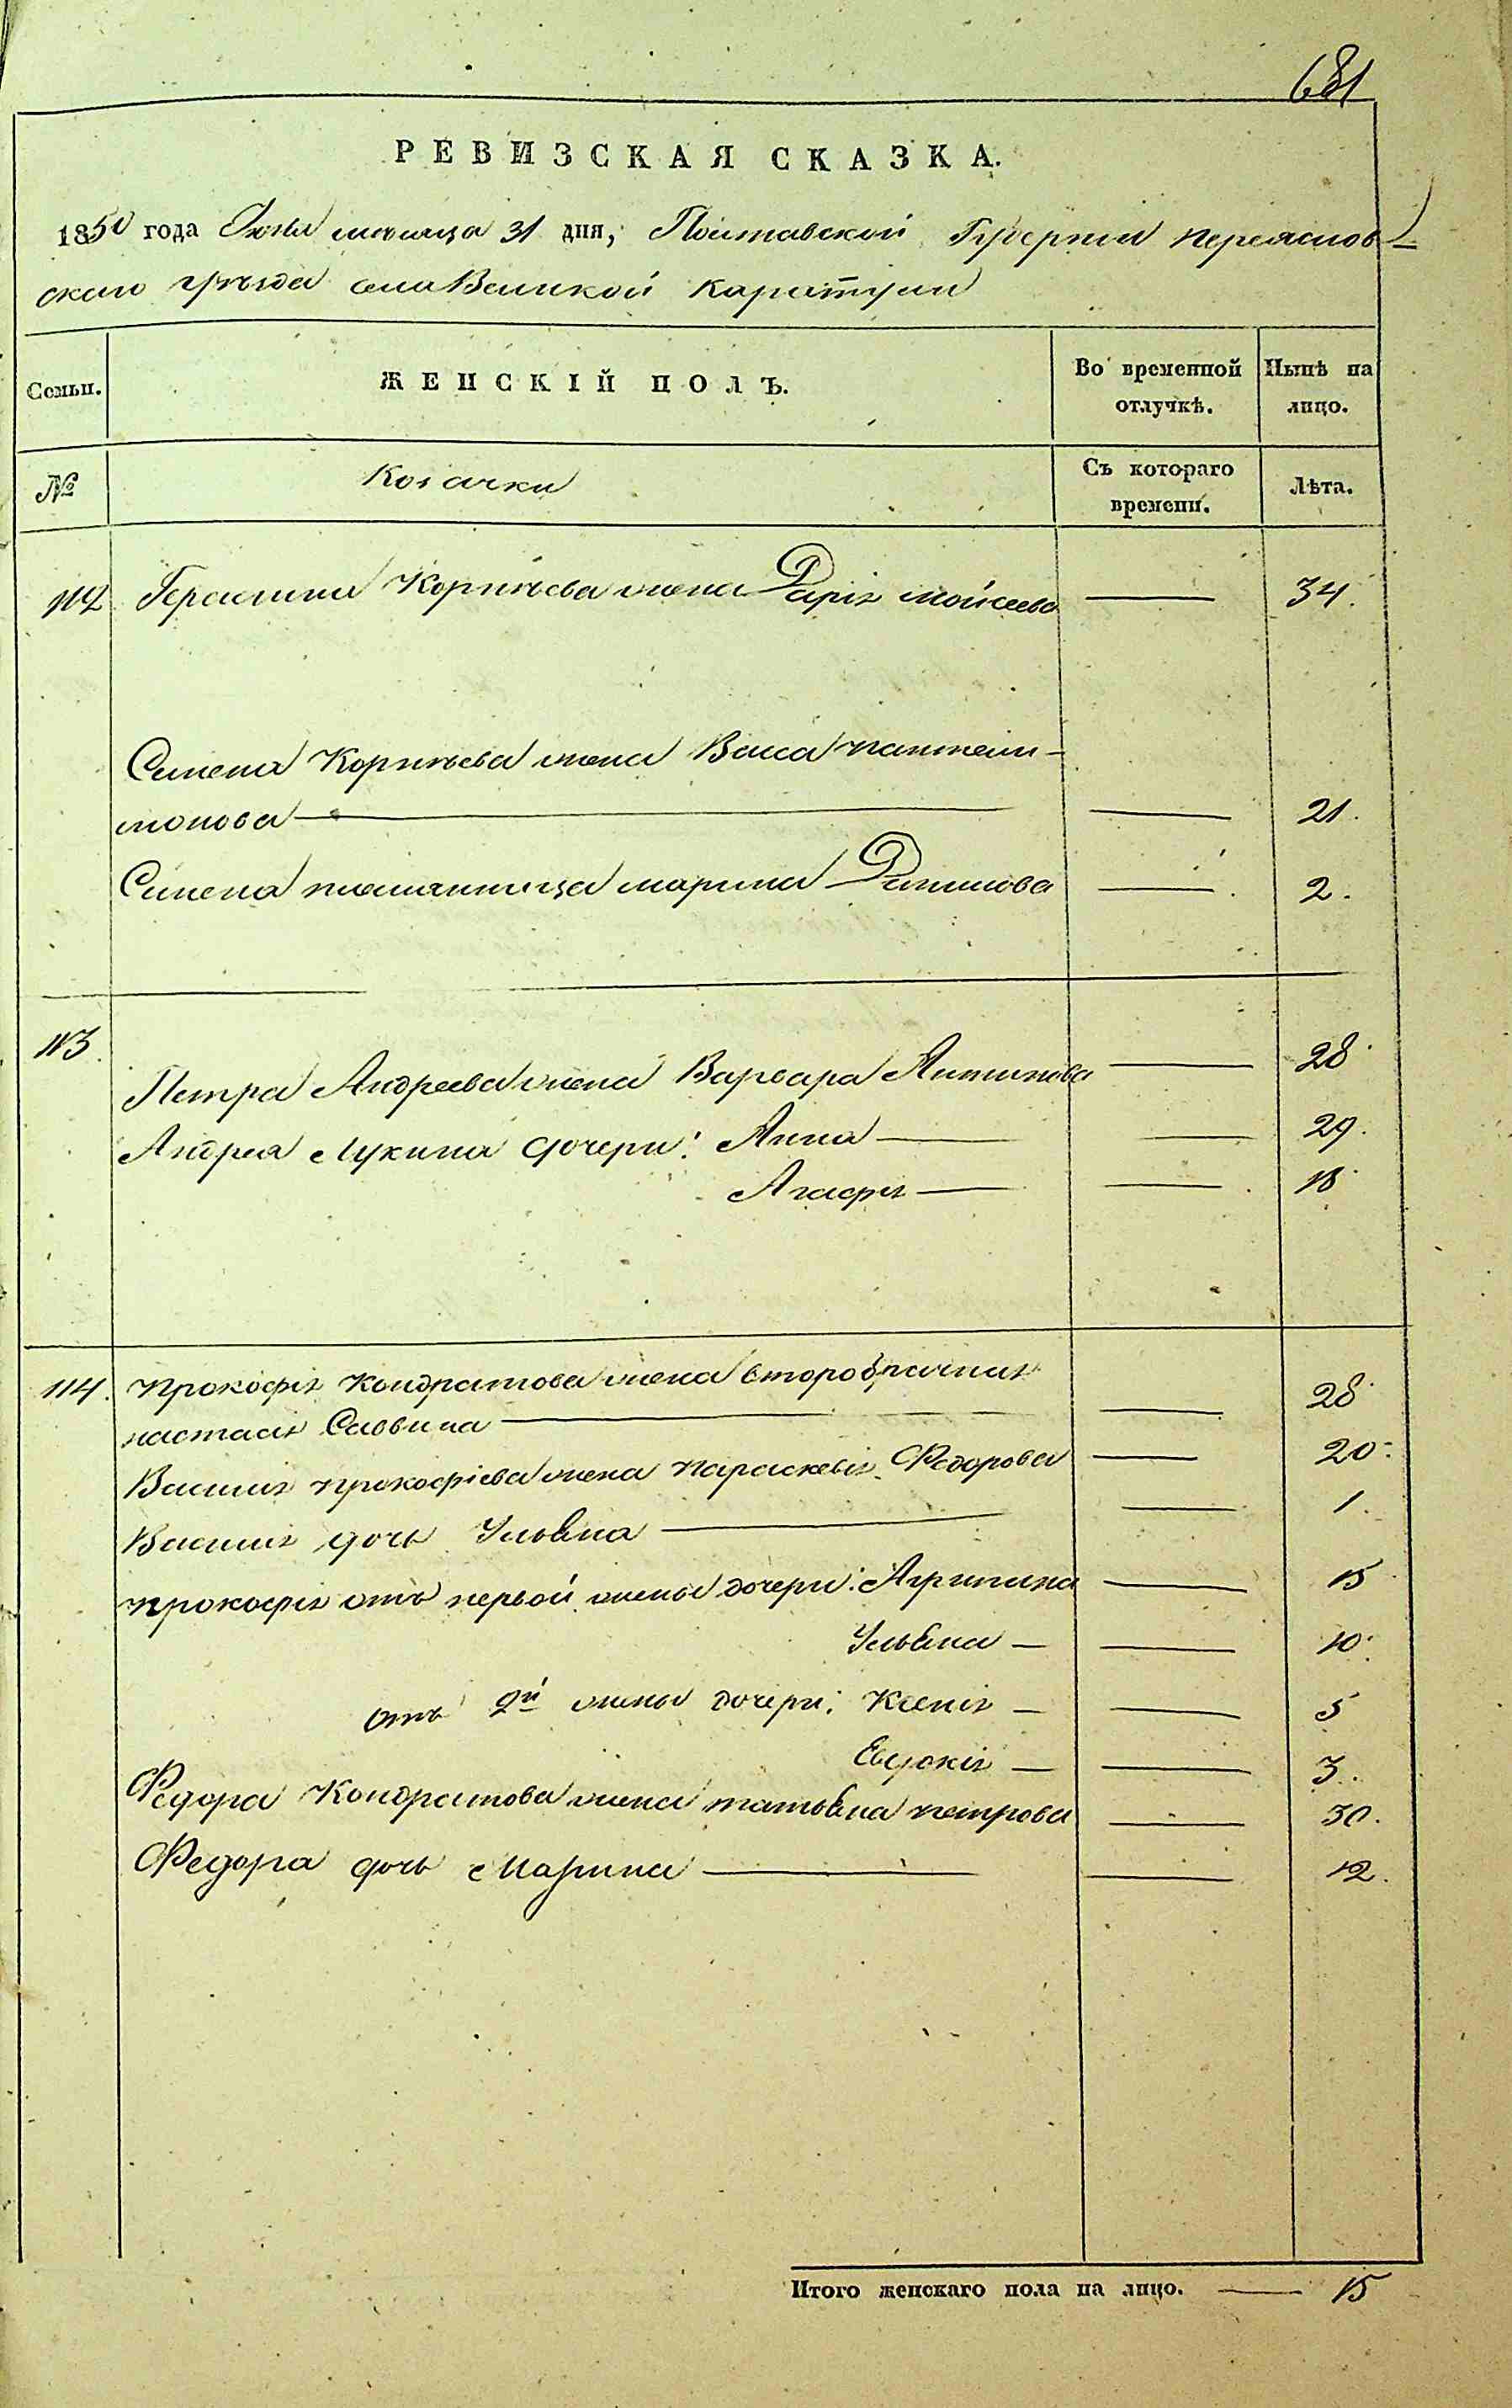 681
РЕВИЗСКАЯ СКАЗКА.
1850 года Июля месяца 31 дня, Полтавской Губерніи переяслов-
скаго уѣзда села Великой Каратули
Семьи.
ЖЕНСКІЙ ПОЛЪ.
Во временной отлучкѣ.
Нынѣ на лицо.
№
Козачки
Съ котораго времени.
Лѣта.
112 Герасима Корнѣева жена Дарія мойсеева — 34.
Симена Корнѣева жена Васса пантели-
монова — — 21.
Симена племянница марина Данилова — 2.
113.
Петра Андреева жена Варвара Антипова — 28
Андрея Лукина дочери: Анна — — 29.
Агафія — — 18
114. прокофія Кондратова жена второбрачная
настасія Саввина — — 28
Василія прокофіева жена параскевія Федорова — 20.
Василія дочь Ульяна — — 1.
прокофія отъ первой жены дочери: Агрипина — 15
Ульяна — — 10.
отъ 2й жены дочери: Ксенія — — 5
Евдокія — — 3.
Федора Кондратова жена татьяна петрова — 30.
Федора дочь Марина — — 12.
Итого женскаго пола на лицо. — 15